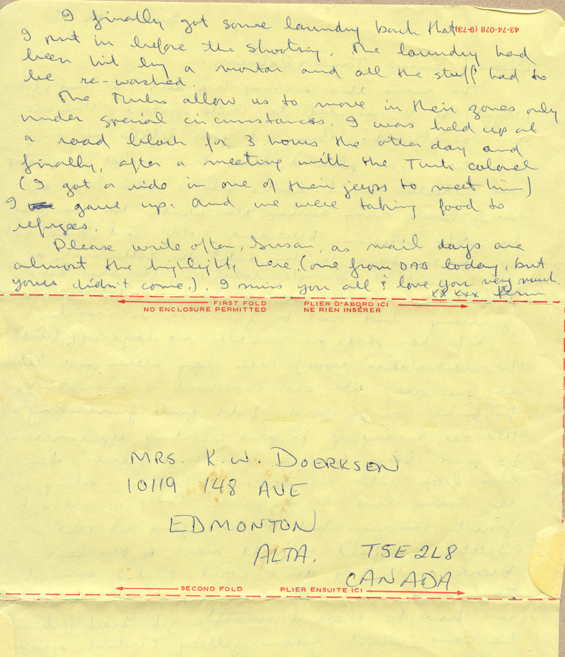 I finally got some laundry back that
43-74-078 (9-73)
I put in before the shooting. The laundry had
been hit by a mortar and all the stuff had to
be re-washed.
The Turks allow us to move in their zones only
under special circumstances. I was held up at
a road block for 3 hours the other day and
finally, after a meeting with the Turk colonel
(I got a ride in one of their jeeps to meet him)
I gave up. And we were taking food to
refugees.
Please write often, Susan, as mail days are
almost the highlight, here, (one from DAD today, but
yours didn't come.). I miss you all & love you very much.
xx xxx
FIRST FOLD PLIER D'ABORD ICI
NO ENCLOSURE PERMITTED NE RIEN INSÉRER
MRS. K. W. DOERKSEN
10119 148 AVE
EDMONTON
ALTA. T5E 2L8
CANADA
SECOND FOLD PLIER ENSUITE ICI